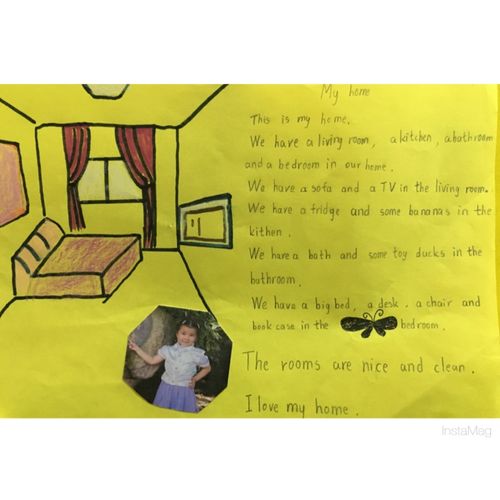 My home
This is my home.
We have a living room, a kitchen, a bathroom
and a bedroom in our home.
We have a sofa and a TV in the living room.
We have a fridge and some bananas in the
kithen.
We have a bath and some toy ducks in the
bathroom.
We have a big bed, a desk, a chair and
book case in the bedroom.
The rooms are nice and clean.
I love my home.
InstaMag